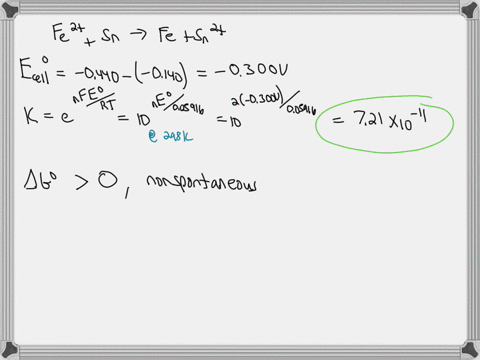 Fe²⁺ + Sn → Fe + Sn²⁺
E°cell = -0.440 - (-0.140) = -0.300V
K = e^(nFE°/RT) = 10^(nE°/0.05916) = 10^(2(-0.300V)/0.05916) = 7.21 × 10⁻¹¹
@ 298K
ΔG° > 0, nonspontaneous